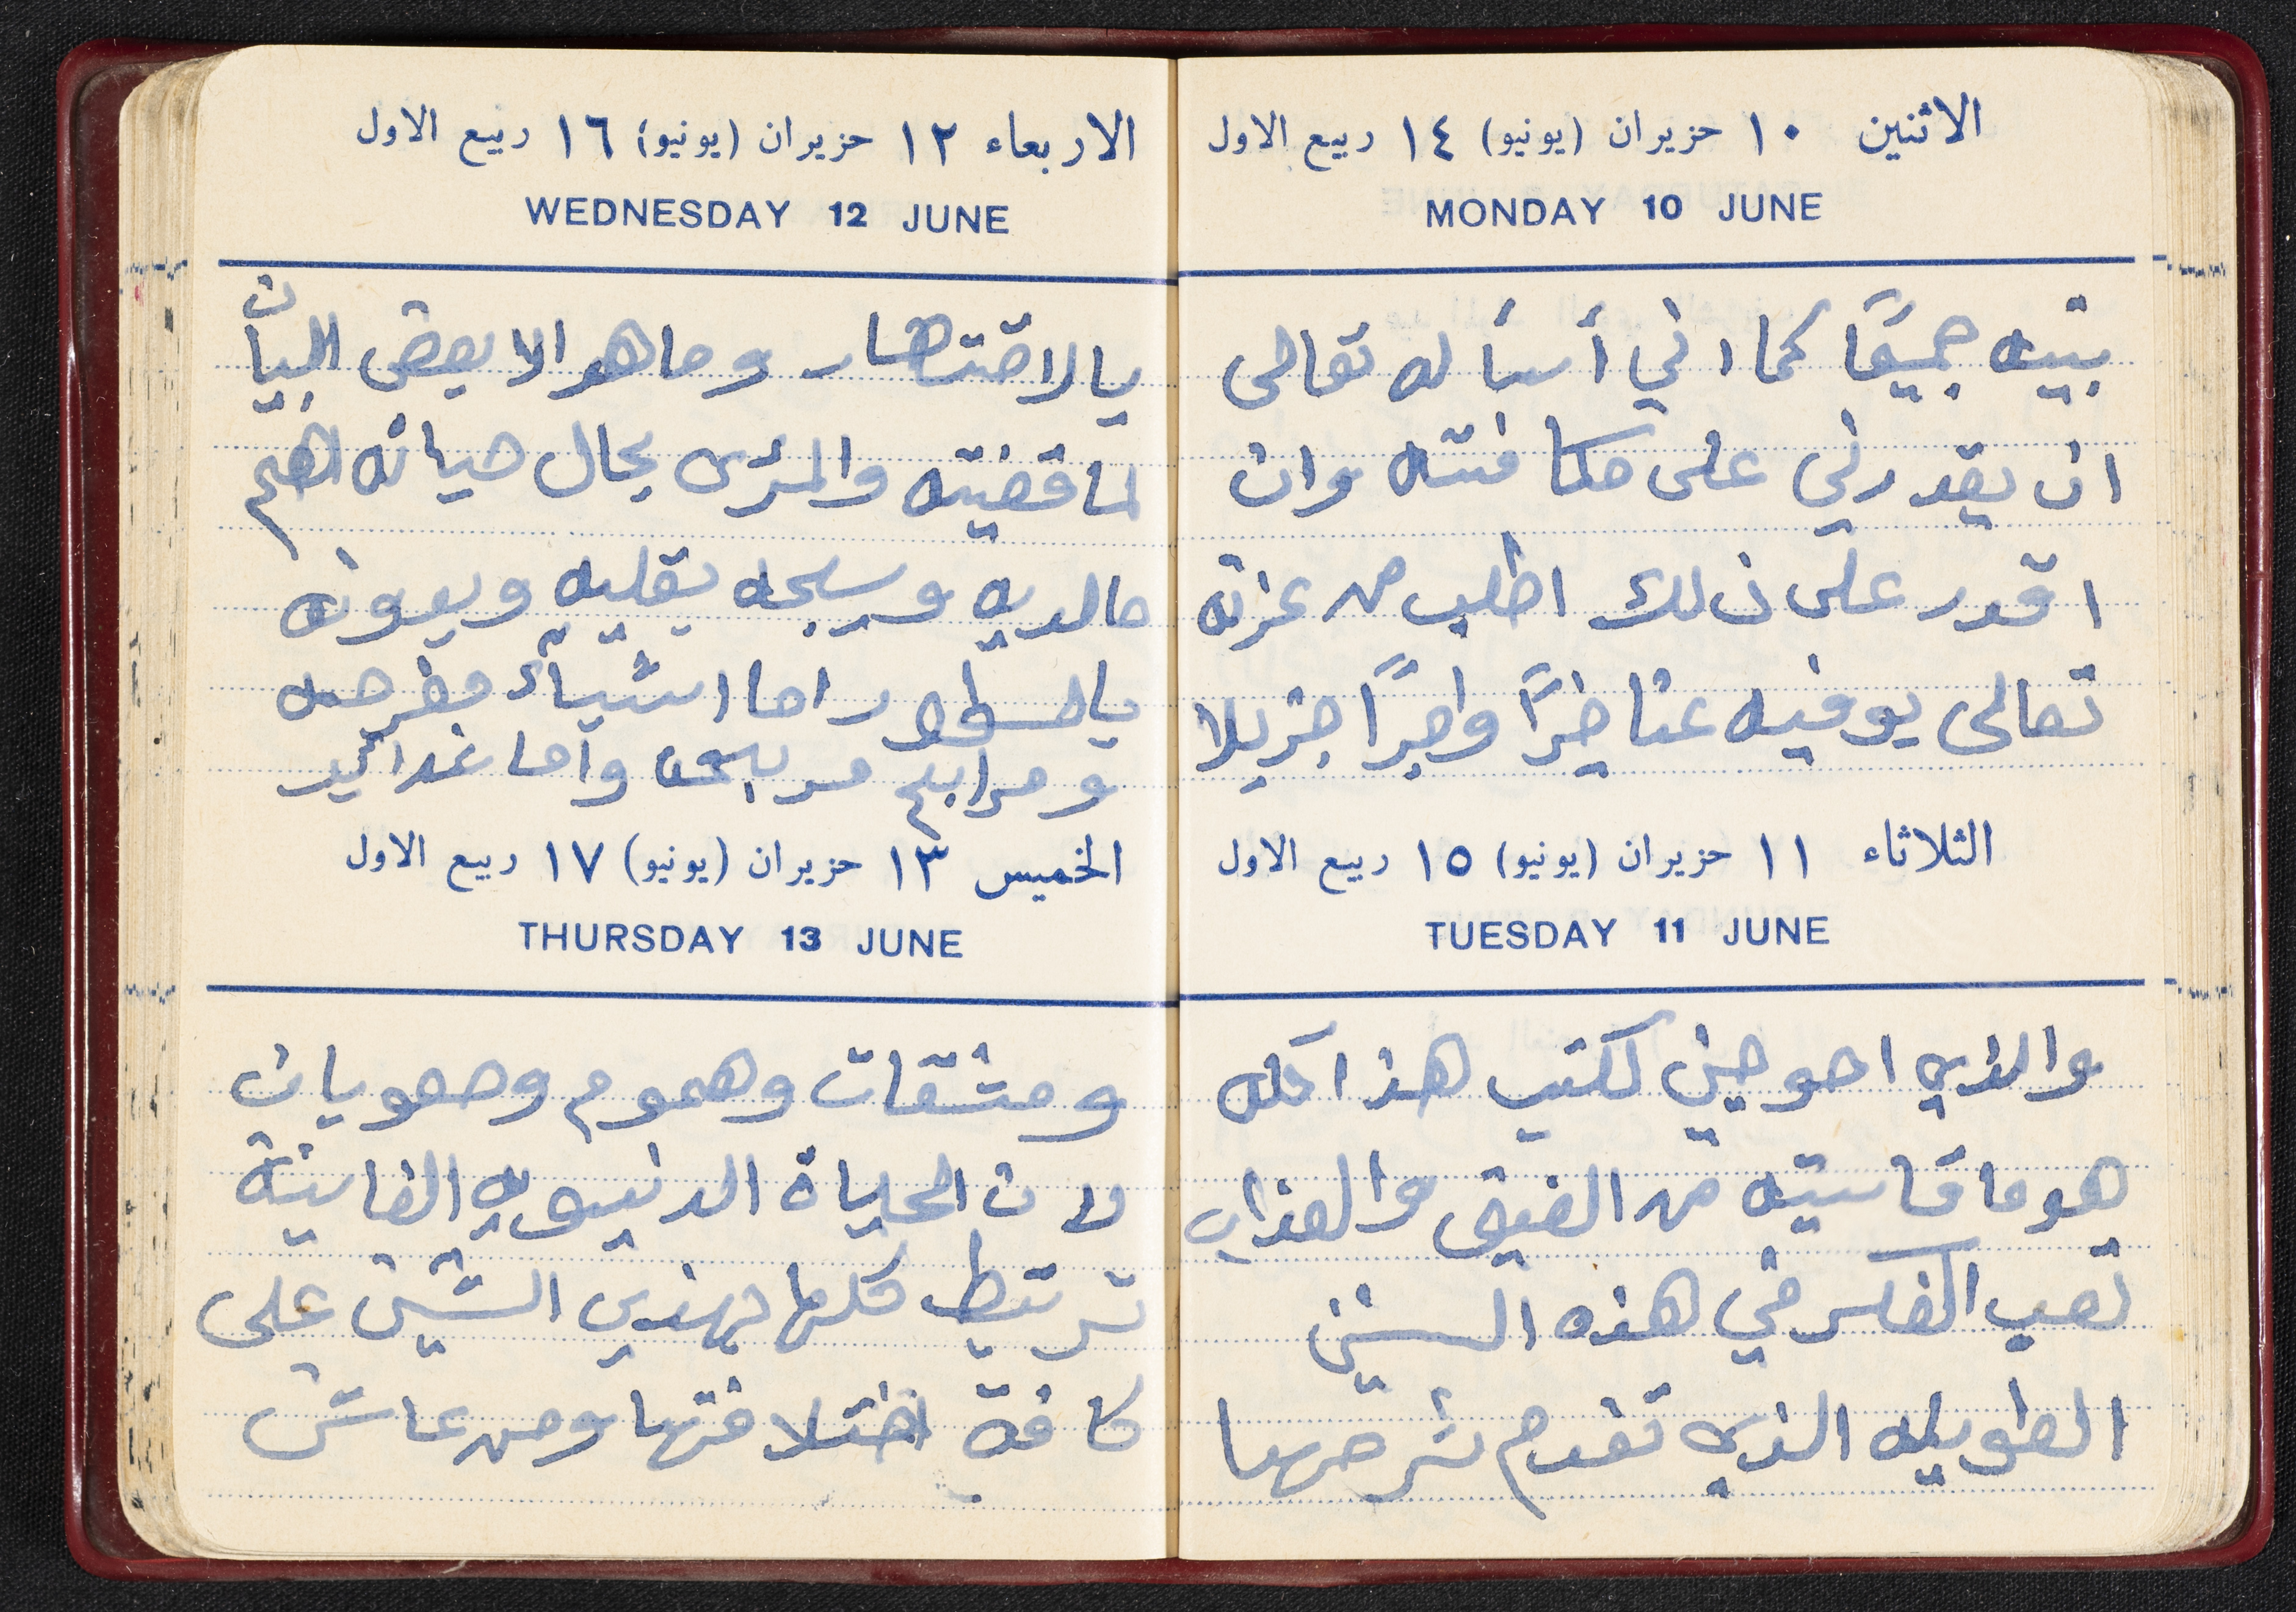 الاثنين ١٠ حزيران (يونيو) ١٤ ربيع الاول
MONDAY 10 JUNE
بنيه جميعًا كما اني أسأله تعالى
ان يقدرني على مكافئته وان
اقدر على ذلك اطلب من عزته
تعالى يوفيه عنا خيرًا واجرًا جزيلا
الثلاثاء ١١ حزيران (يونيو) ١٥ ربيع الاول
TUESDAY 11 JUNE
والذي احوجني لكتب هذا كله
هو ما قاسيته من الضيق والعذاب
تعب الفكر في هذه السنين
الطويله الذي تقدم شرحها
الاربعاء ١٢ حزيران (يونيو) ١٦ ربيع الاول
WEDNESDAY 12 JUNE
بالاختصار وما هو الا بعض البيان
لما قضيته والمرئ بحال حياته
ما لديه ويسجله بقلبه
بالسطور اما اشياء مفرحه
ومرابح مربحه واما غدائير
الخميس ١٣ حزيران (يونيو) ١٧ ربيع الاول
THURSDAY 13 JUNE
ومشقات وهموم وصعوبات
لان الحياة الدنيويه الفانية
ترتبط كلها بهذي الشيئين على
كافة اختلافتها ومن عاش